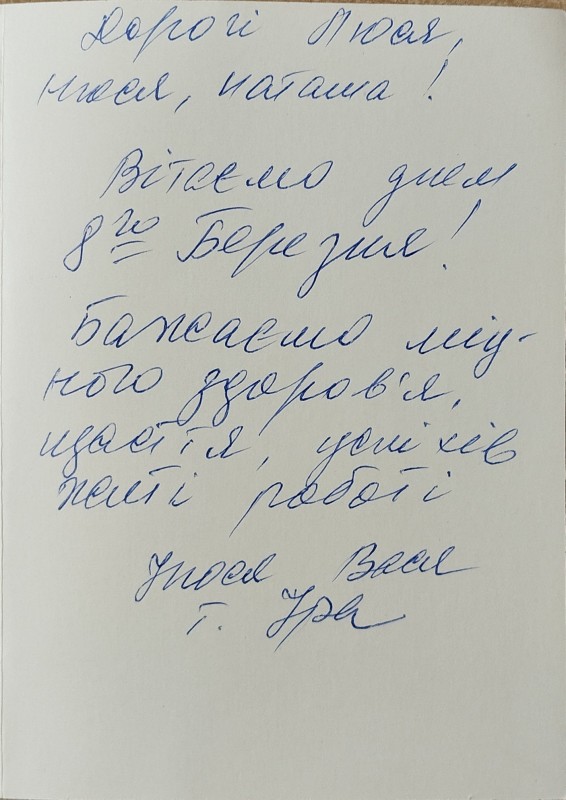 Дорогі Люся,
Нюся, Наташа!
Вітаємо днем
8го Березня!
Бажаємо міц-
ного здоров'я,
щастя, успіхів
житі роботі
Нюся Вася
т. Іра